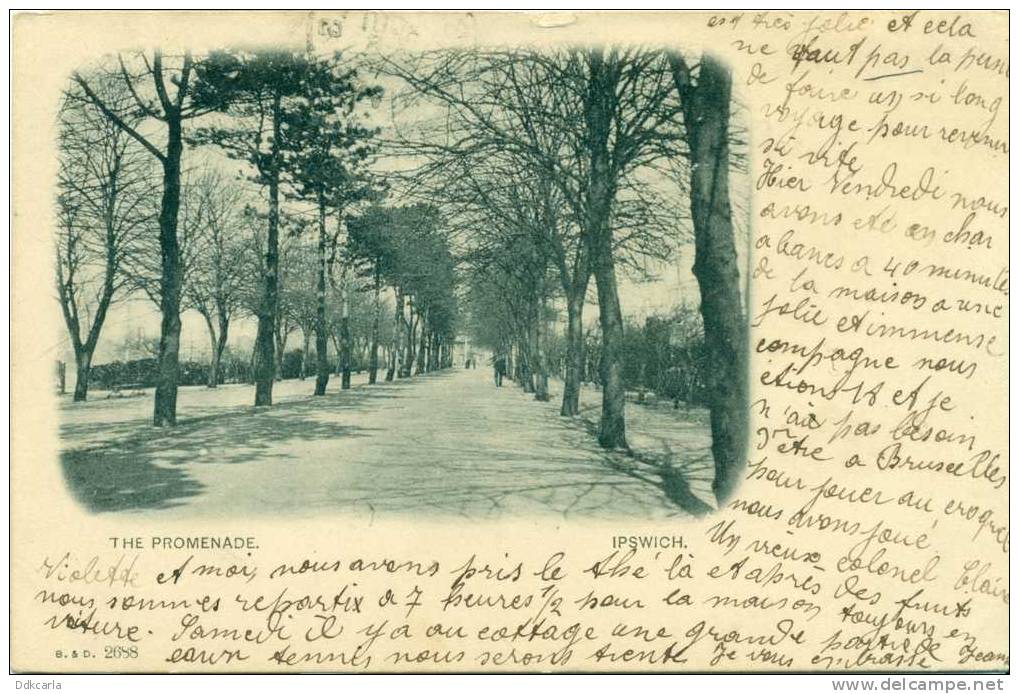 est très jolie et cela
ne vaut pas la peine
de faire un si long
voyage pour revenir
si vite
Hier Vendredi nous
avons été en char
a bancs a 40 minutes
de la maison a une
jolie et immense
compagne nous
etions 18 et je
n'ai pas besoin
d'être a Bruxelles
pour jouer au croquet
nous avons joué.
Un vieux colonel Claire
THE PROMENADE.
IPSWICH.
Violette et moi, nous avons pris le thé là et après des fruits
nous sommes repartix a 7 heures 1/2 pour la maison toujours en
voiture. Samedi il y a au cottage une grande partie de
tennis nous serons trente Je vous embrasse Jeanne
B. & D. 2688
Dkcarla
www.delcampe.net